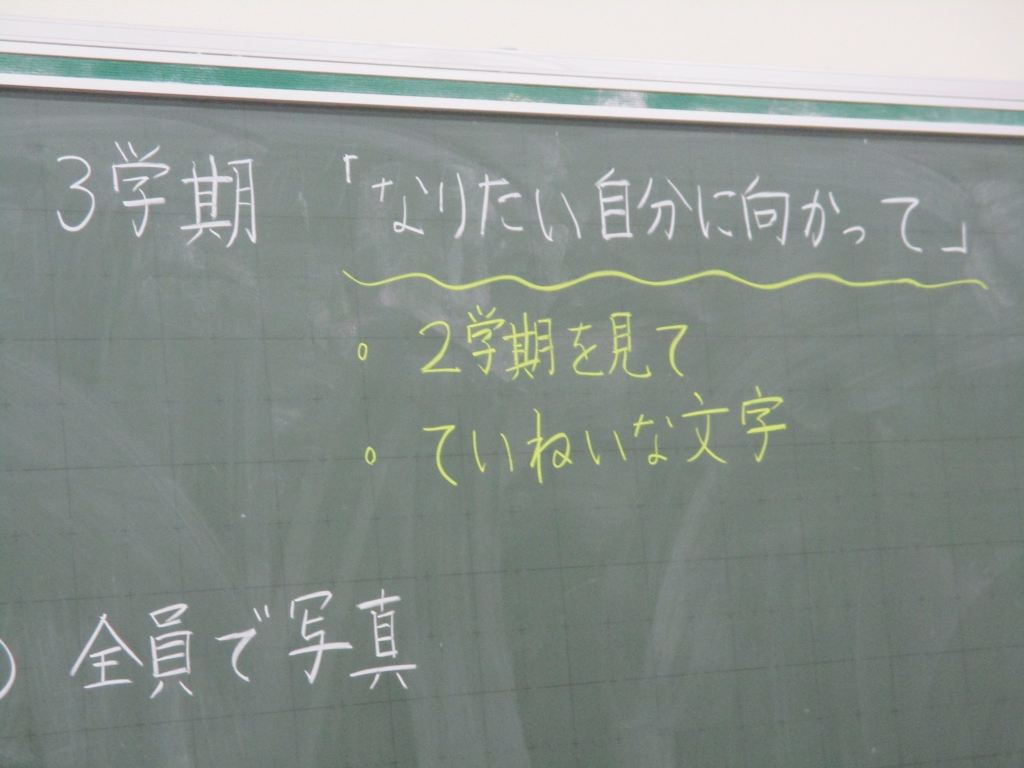 3学期 「なりたい自分に向かって」
。2学期を見て
。ていねいな文字
) 全員で写真